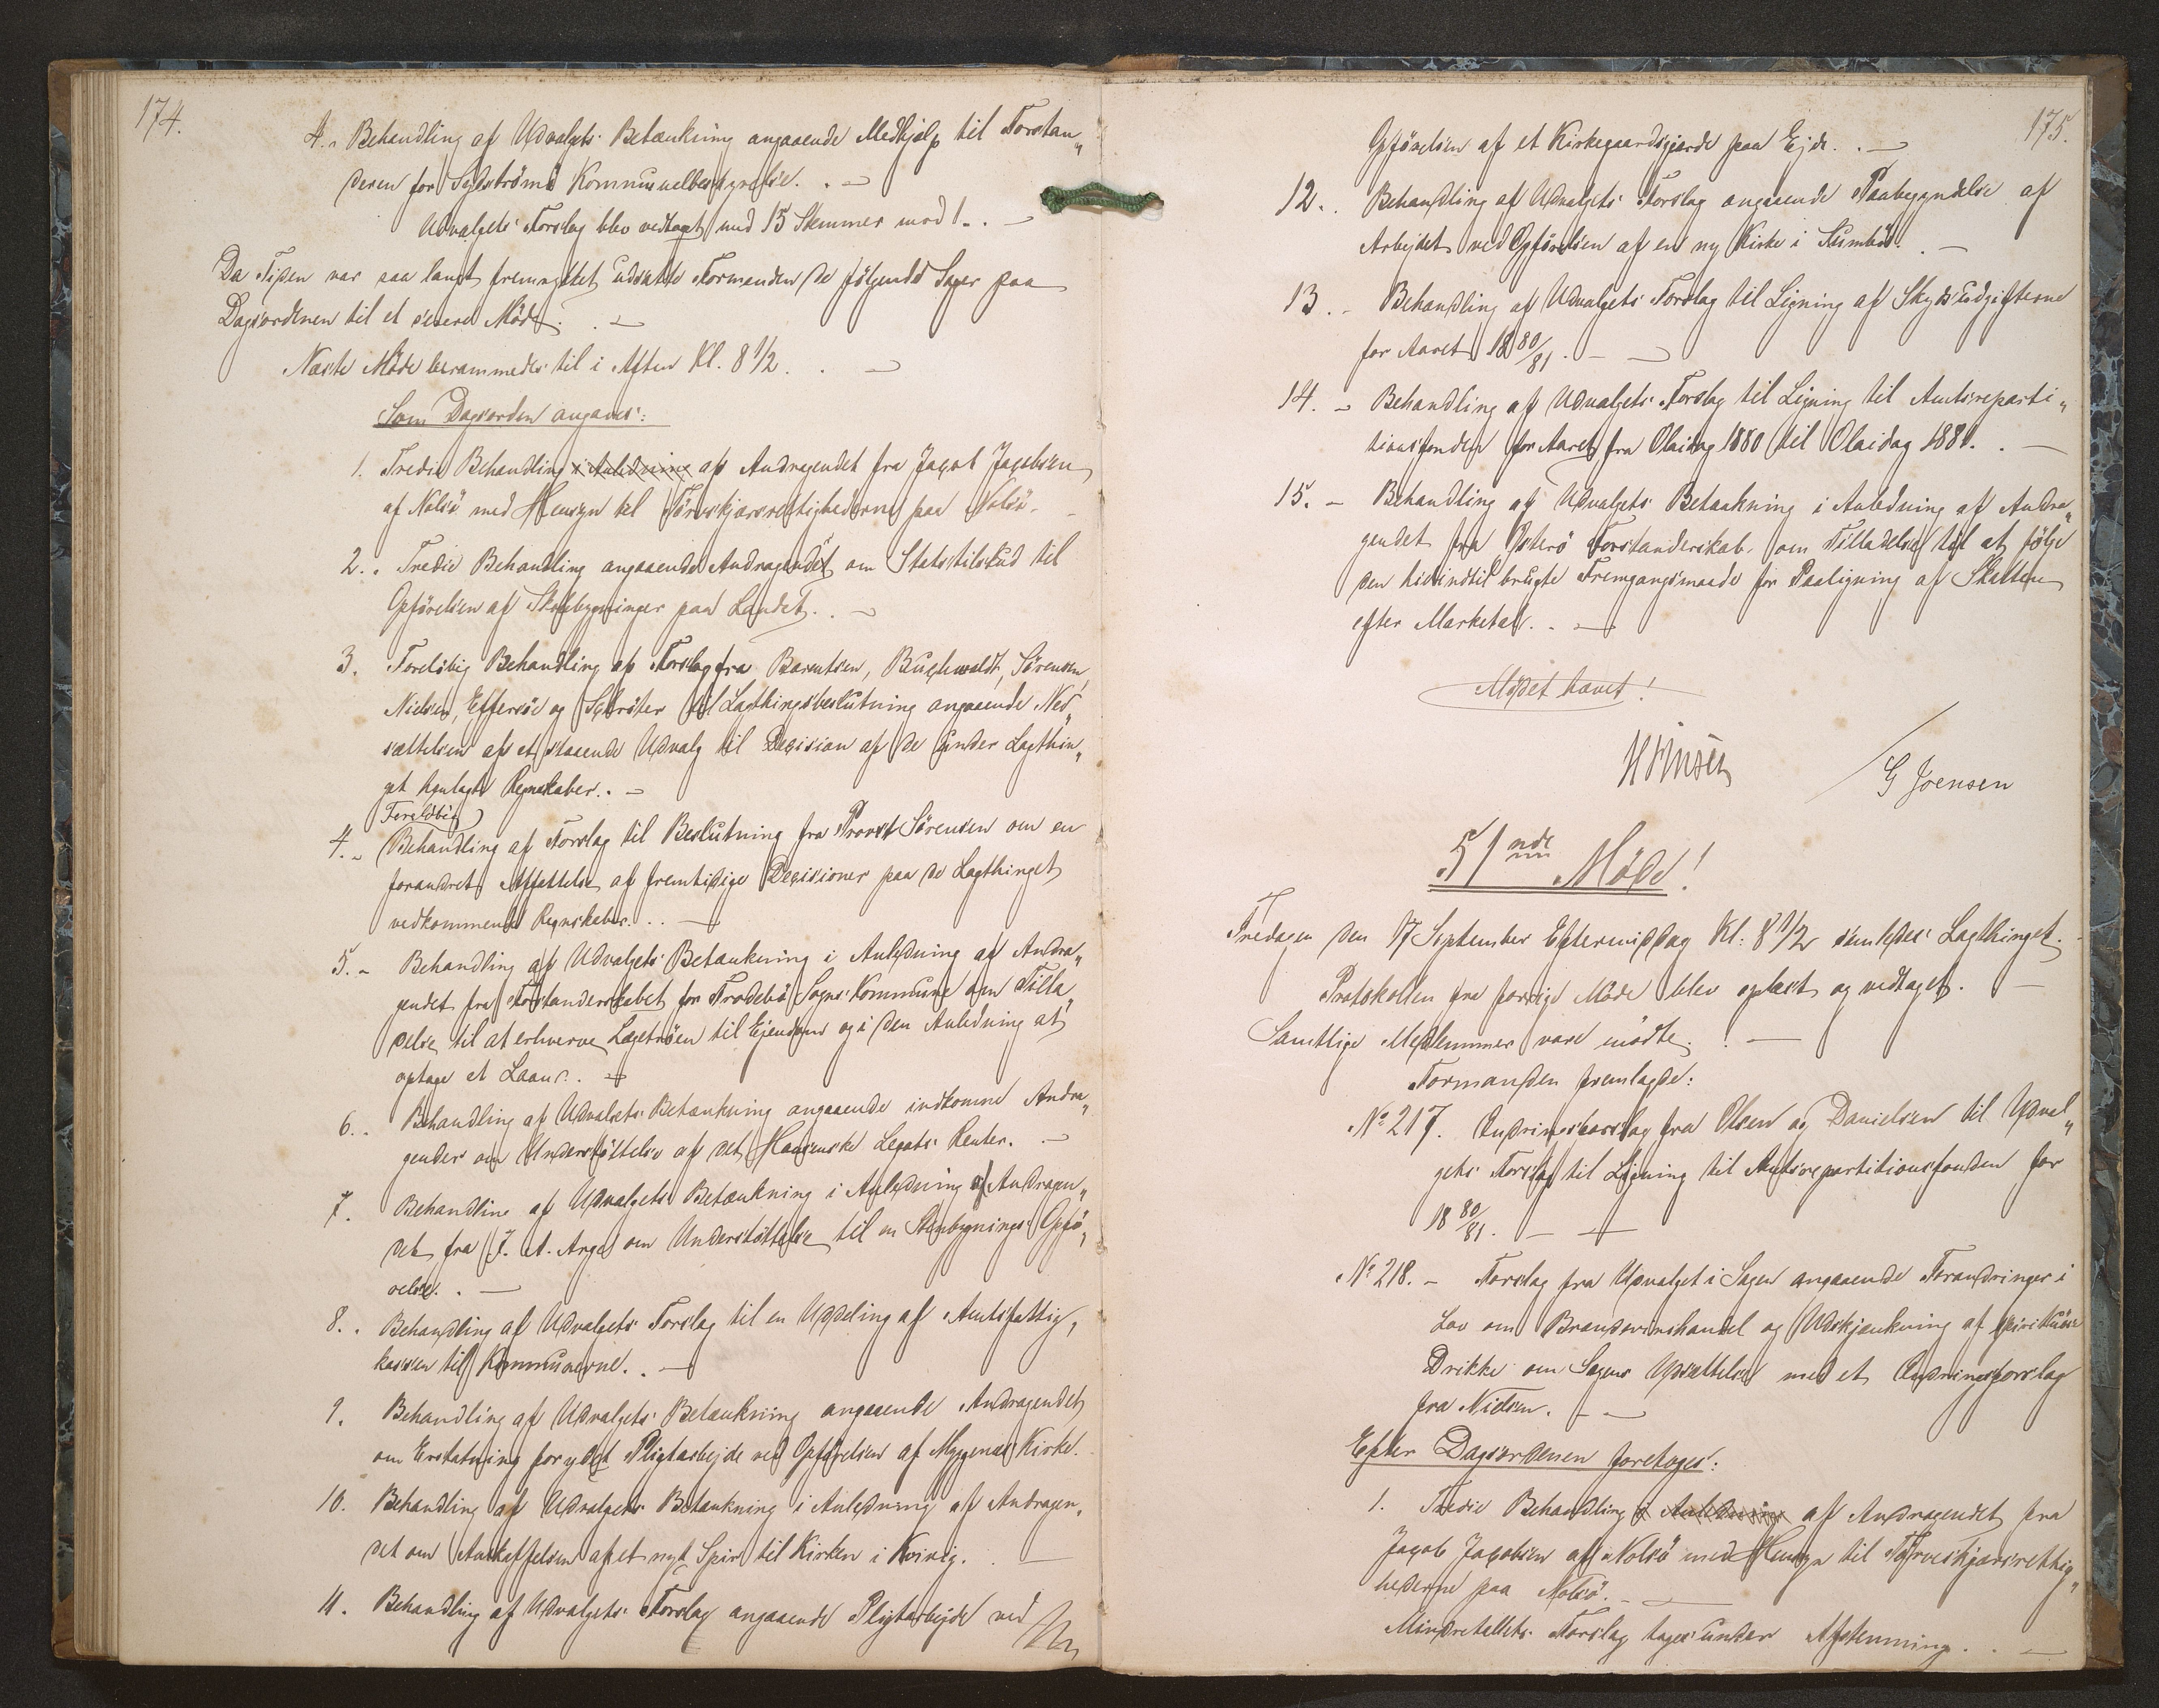 174.
4. Behandling af Udvalgets Betænkning angaaende Medhjælp til Forstan„
deren for Sydströmö Kommunalbestyrelse. . —
Udvalgets Forslag blev vedtaget med 15 Stemmer mod 1. . —
Da Tiden var saa langt fremrykket udsatte Formanden de følgende Sager paa
Dagsordenen til et senere Möde. . —
Næste Möde berammedes til i Aften Kl. 8 1/2. . —
Som Dagsorden angaves:
1. Tredie Behandling i Anledning af Andragendet fra Jacob Jacobsen
af Nolsö med Hensyn til Törveskjærsrettighederne paa Nolsö. —
2. . Tredie Behandling angaaende Andragendet om Statstilskud til
Opförelsen af Skolebygninger paa Landet. . —
3. Foreløbig Behandling af Forslag fra Barentsen, Buchwaldt, Sörensen,
Nielsen, Effersöe og Schröter til Lagthingsbeslutning angaaende Ned„
sættelsen af et staaende Udvalg til Decision af de under Lagthin„
get henlagte Regnskaber. . —
Foreløbig
4. – Behandling af Forslag til Beslutning fra Provst Sörensen om en
forandret Affattelse af fremtidige Decisioner paa de Lagthinget
vedkommende Regnskaber. . . —
5. – Behandling af Udvalgets Betænkning i Anledning af Andra„
gendet fra Forstanderskabet for Frodebö Sogns Kommune om Tilla„
delse til at erhverve Lægetröen til Ejendom og i den Anledning at
optage et Laan. . —
6. . Behandling af Udvalgets Betænkning angaaende indkomne Andra„
gender om Understöttelse af det Hansenske Legats Renter. . —
7. Behandling af Udvalgets Betænkning i Anledning af Andragen„
det fra J. A. Arge om Understöttelse til en Stenbygnings Opfö„
relse. . —
8. . Behandling af Udvalgets Forslag til en Uddeling af Amtsfattig„
kassen til Kommunerne. . —
9. Behandling af Udvalgets Betænkning angaaende Andragendet
om Erstatning for ydet Pligtarbejde ved Opförelsen af Myggenæs Kirke.
10. Behandling af Udvalgets Betænkning i Anledning af Andragen„
det om Anskaffelsen af et nyt Spir til Kirken i Kvivig. —
11. Behandling af Udvalgets Forslag angaaende Pligtarbejde ved
175.
Opförelsen af et Kirkegaardsgjærde paa Ejde. . —
12. . Behandling af Udvalgets Forslag angaaende Paabegyndelse af
Arbejdet ved Opförelsen af en ny Kirke i Sumbö. . —
13. . – Behandling af Udvalgets Forslag til Ligning af Skydsudgifterne
for Aaret 18 80/81. – —
14. – Behandling af Udvalgets Forslag til Ligning til Amtsreparti„
tionsfonden for Aaret fra Olaidag 1880 til Olaidag 1881. . —
15. – Behandling af Udvalgets Betænkning i Anledning af Andra„
gendet fra Österö Forstanderskab om Tilladelse til at fölge
den hidindtil brugte Fremgangsmaade for Paaligning af Skatten
efter Marketal. . —
Mödet hævet!
G Joensen
51nde Möde!
Fredagen den 17 September Eftermiddag Kl: 8 1/2 samledes Lagthinget. –
Protokollen fra forrige Möde blev oplæst og vedtaget. —
Samtlige Medlemmer vare mödte. . —
Formanden fremlagde:
No 217. Ændringsforslag fra Olsen og Danielsen til Udval„
gets Forslag til Ligning til Amtsrepartitionsfonden for
18 80/81. – —
No 218. – Forslag fra Udvalget i Sagen angaaende Forandringer i
Lov om Brændevinshandel og Udskjænkning af spirituöse
Drikke om Sagens Udsættelse med et Ændringsforslag
fra Nielsen. – —
Efter Dagsordenen foretoges:
1. Tredie Behandling i Anledning af Andragendet fra
Jacob Jacobsen af Nolsö med Hensyn til Törveskjærsrettig„
hederne paa Nolsö. – —
Mindretallets Forslag toges under Afstemning. . —